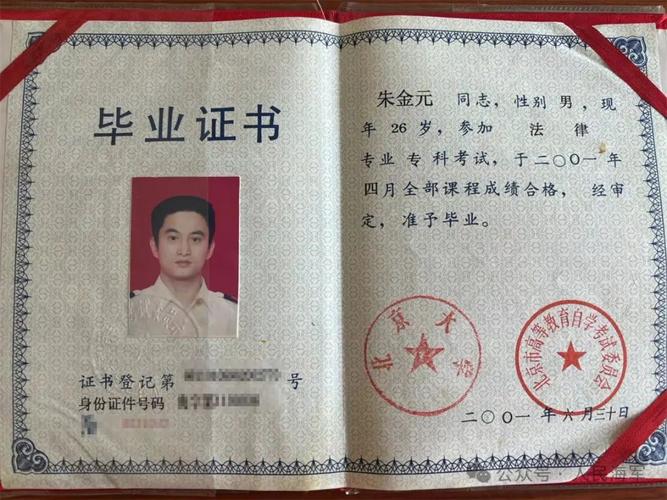 毕业证书
证书登记第 号
身份证件号码
朱金元 同志，性别 男，现
年 26 岁，参加 法律
专业 专 科考试，于二〇〇一年
四月全部课程成绩合格，经审
定，准予毕业。
北京大学
北京市高等教育自学考试委员会
二〇〇一年六月三十日
公众号·人民海军